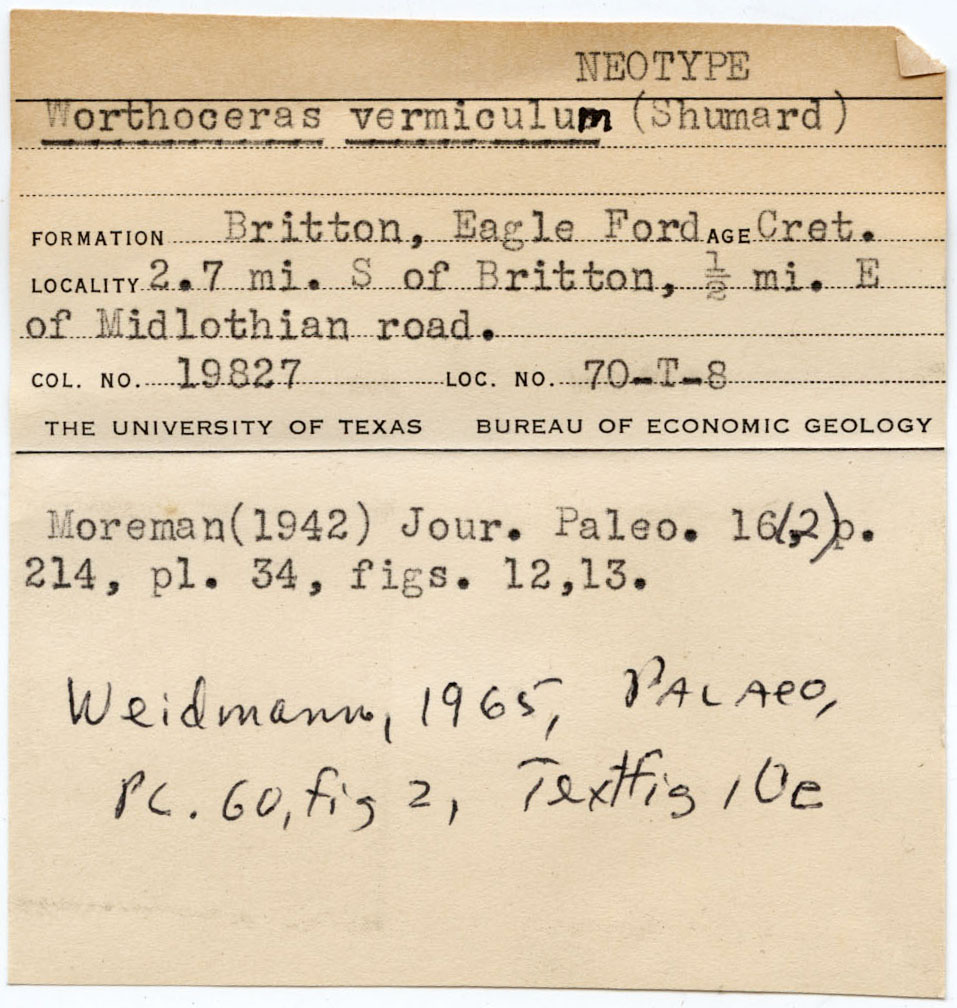 NEOTYPE
Worthoceras vermiculum (Shumard)
FORMATION Britton, Eagle Ford AGE Cret.
LOCALITY 2.7 mi. S of Britton, ½ mi. E
of Midlothian road.
COL. NO. 19827 LOC. NO. 70-T-8
THE UNIVERSITY OF TEXAS BUREAU OF ECONOMIC GEOLOGY
Moreman(1942) Jour. Paleo. 16(2)p.
214, pl. 34, figs. 12,13.
Weidmann, 1965, PALAEO,
PL. 60, fig 2, Textfig 10e